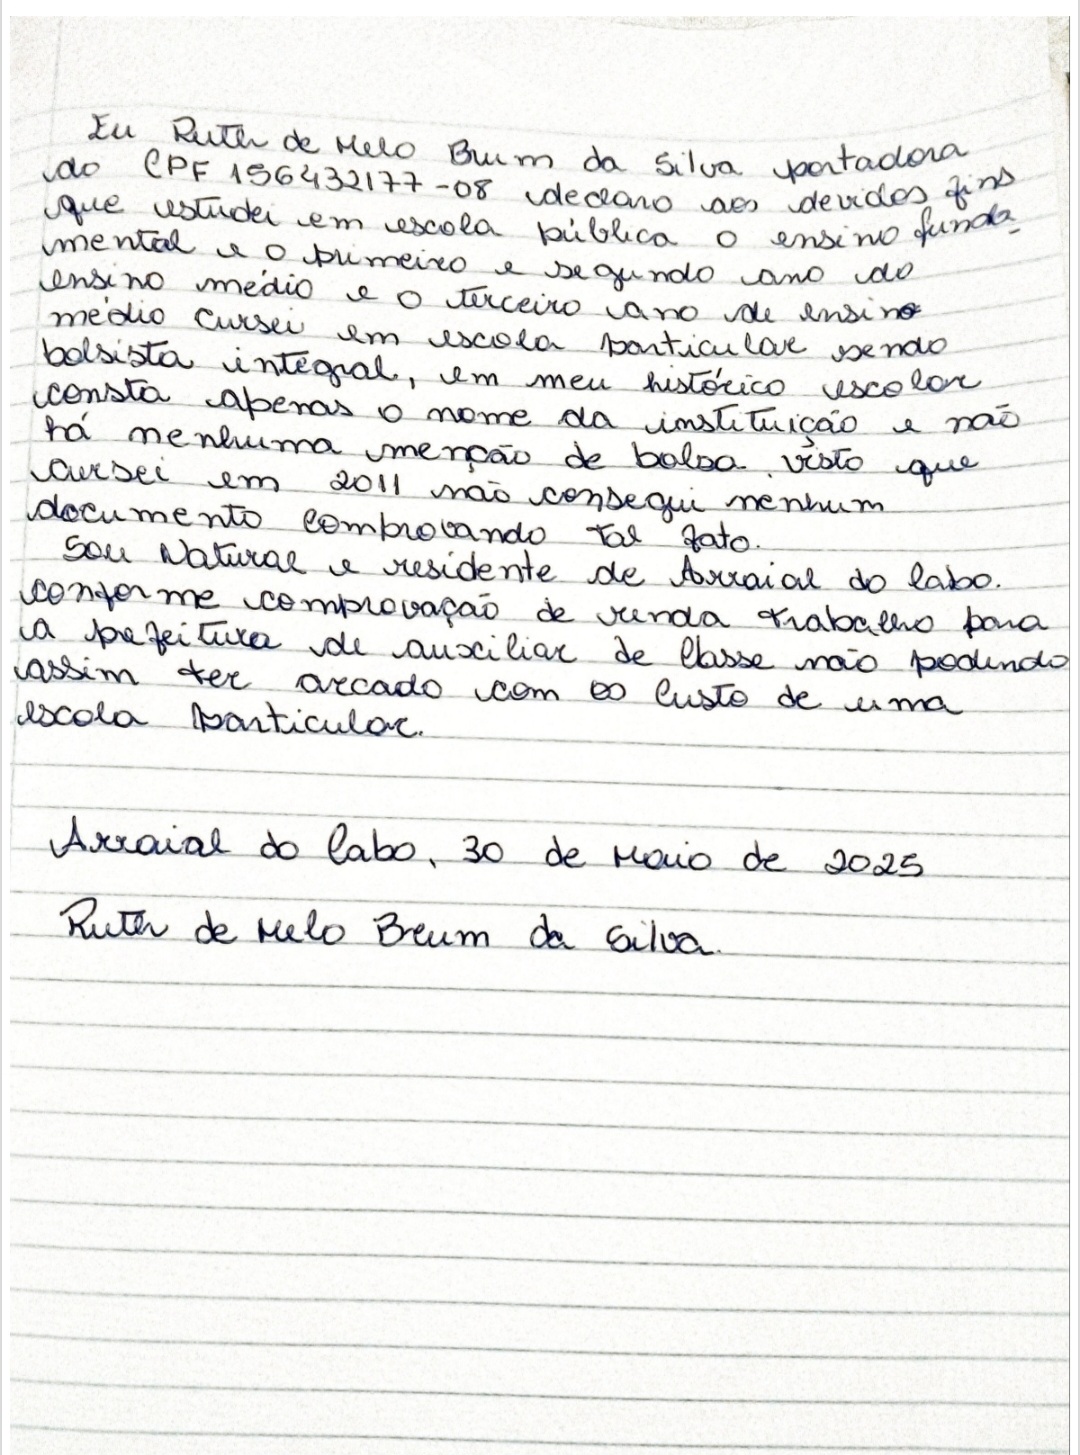 Eu Ruth de Melo Brum da Silva portadora
do CPF 156432177-08 declaro aos devidos fins
que estudei em escola pública o ensino funda-
mental e o primeiro e segundo ano do
ensino médio e o terceiro ano de ensino
médio cursei em escola particular sendo
bolsista integral, em meu histórico escolar
consta apenas o nome da instituição e não
há nenhuma menção de bolsa visto que
cursei em 2011 não consegui nenhum
documento comprovando tal fato.
Sou Natural e residente de Arraial do Cabo.
conforme comprovação de renda trabalho para
a prefeitura de auxiliar de Classe não podendo
assim ter arcado com o custo de uma
escola particular.
Arraial do Cabo, 30 de Maio de 2025
Ruth de Melo Brum da Silva.